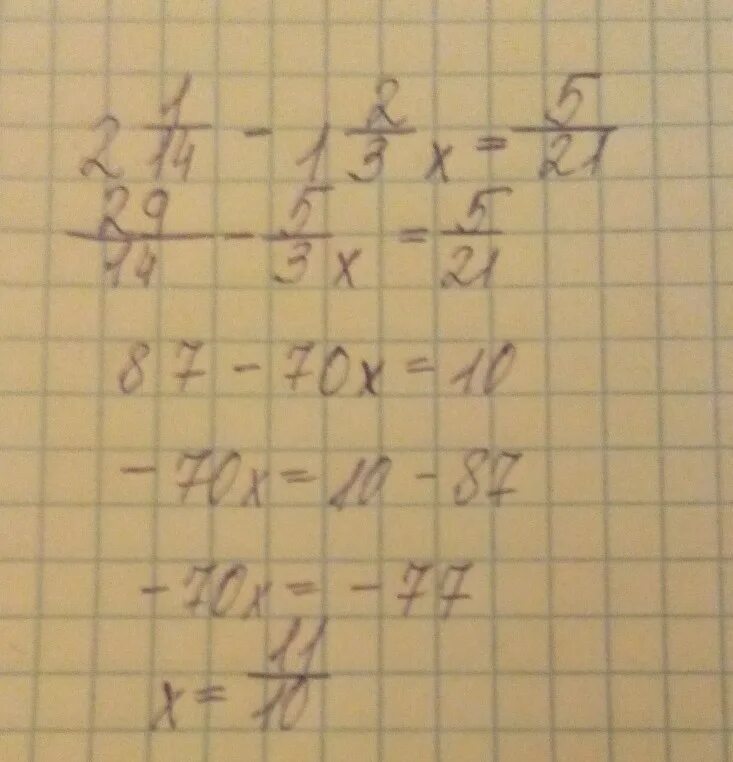 2 1/14 - 1 2/3 x = 5/21
29/14 - 5/3 x = 5/21
87 - 70x = 10
-70x = 10 - 87
-70x = -77
x = 11/10